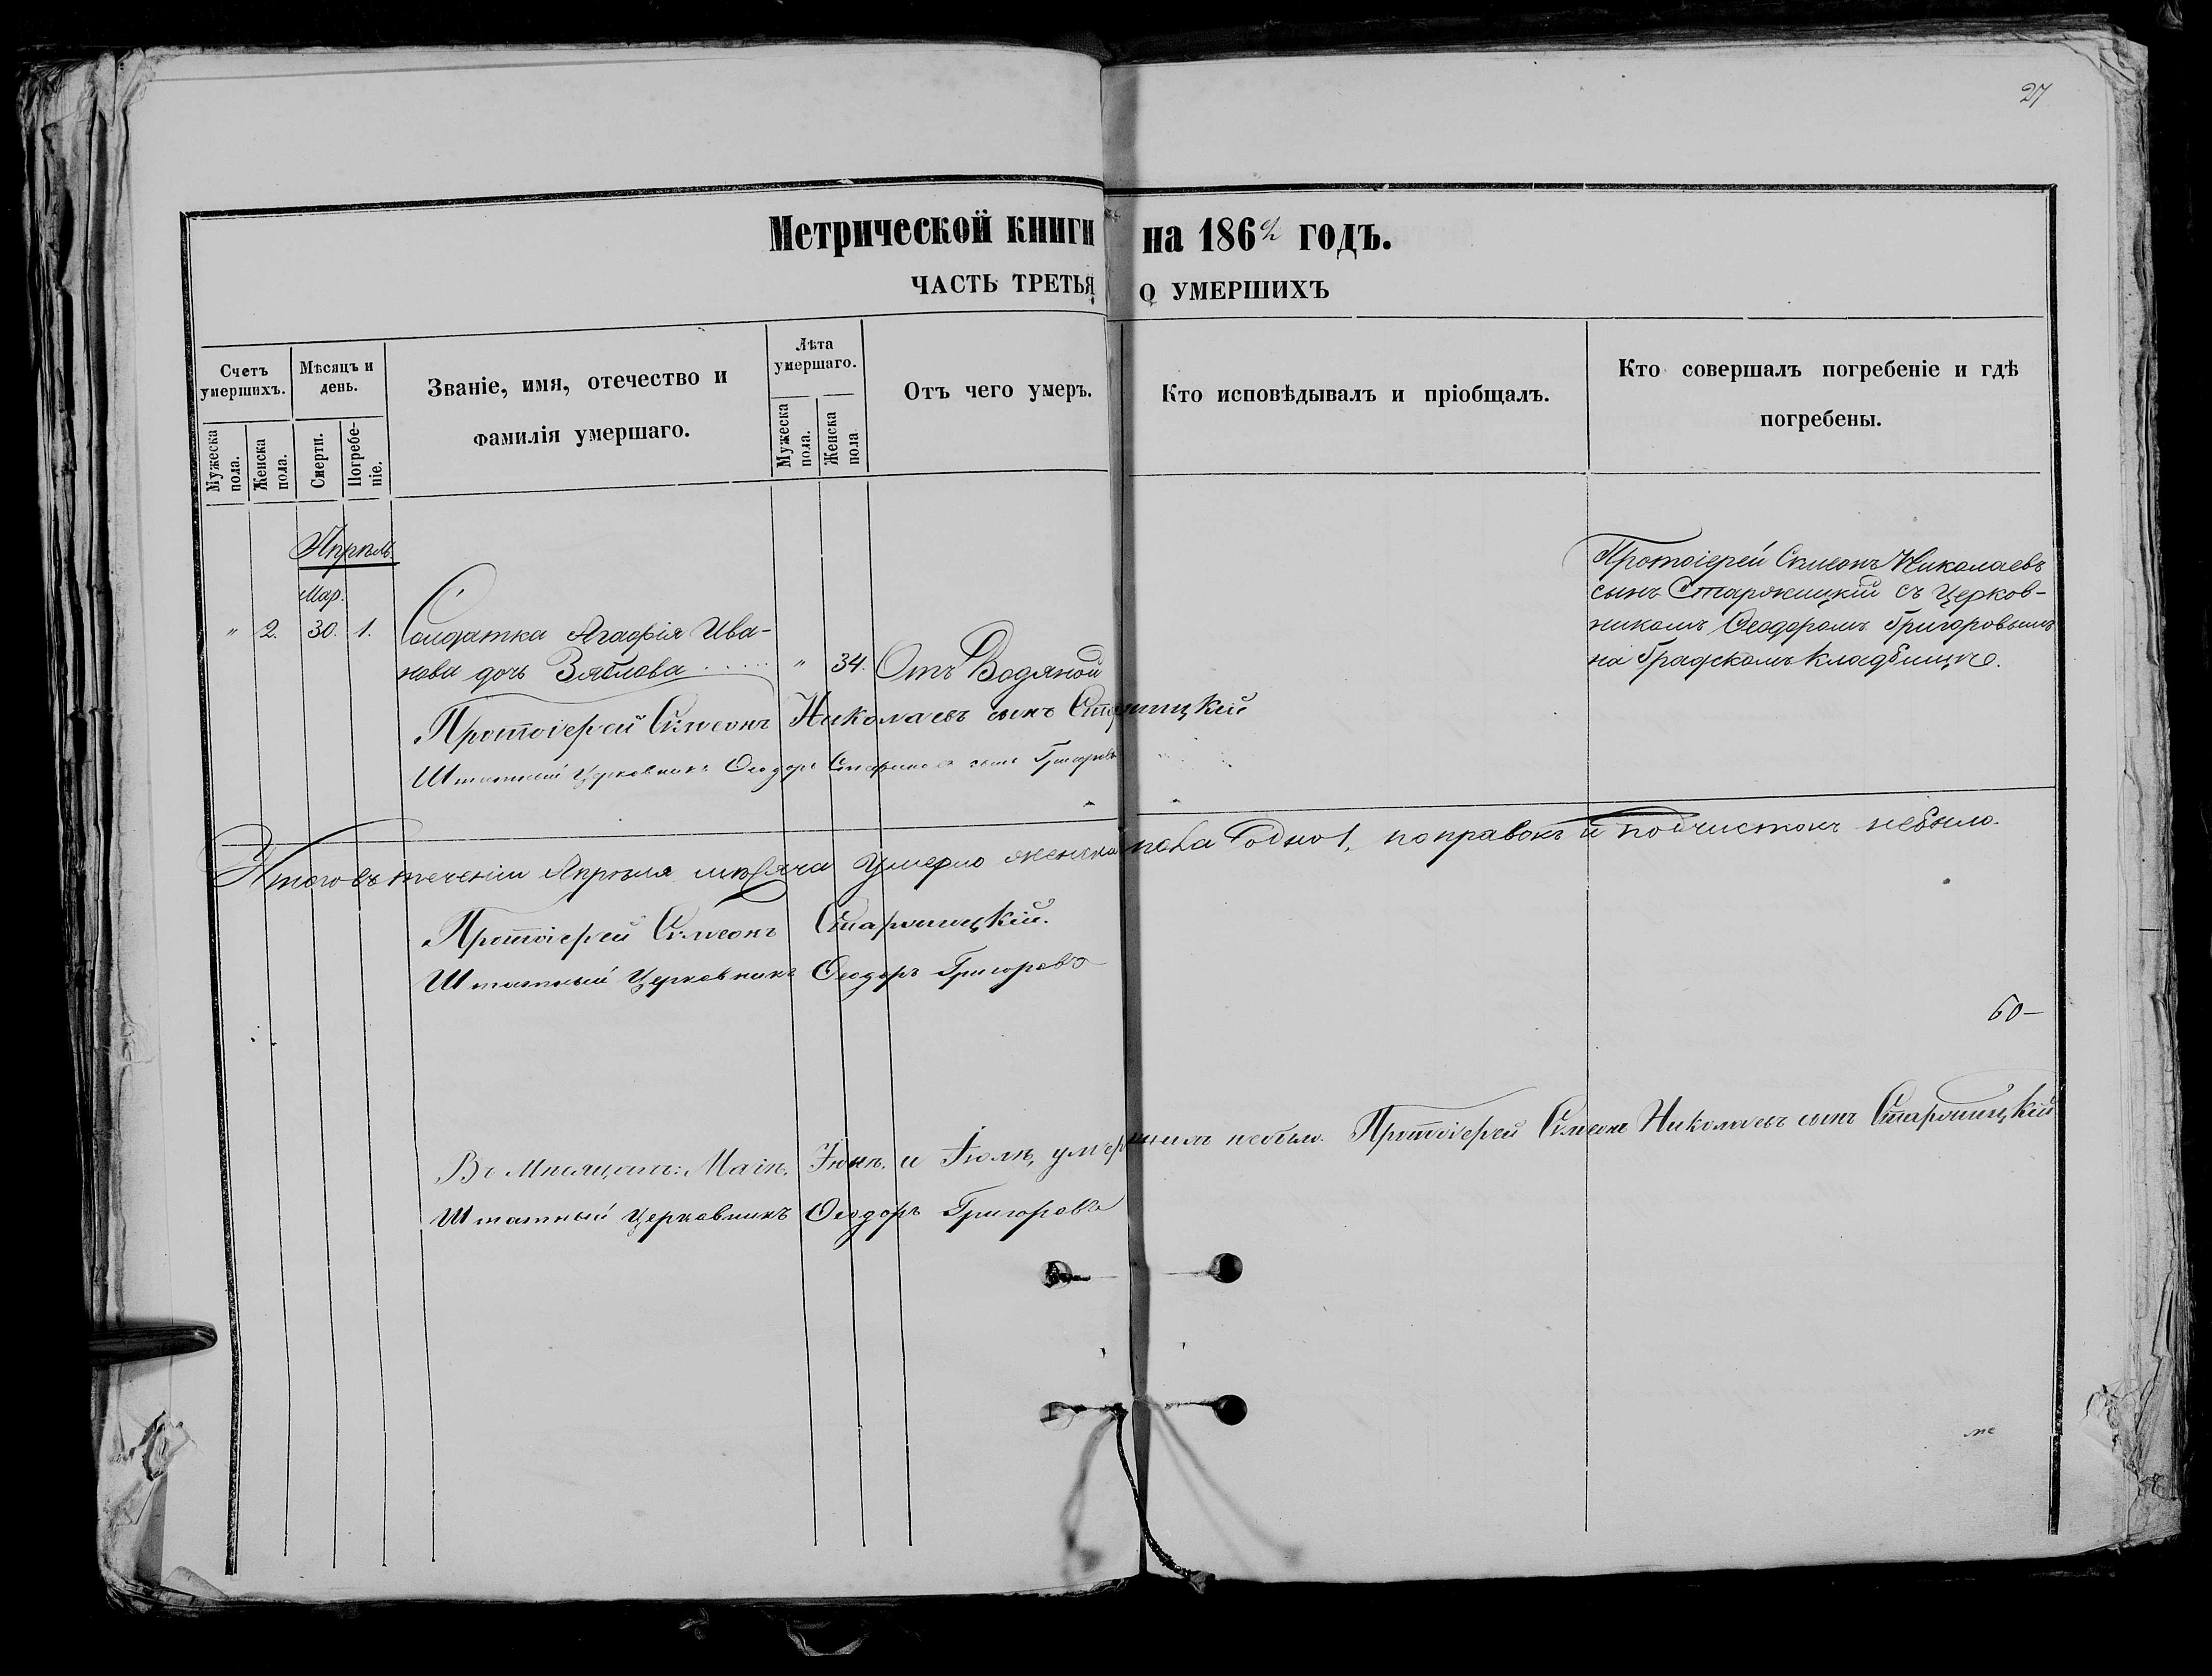 27
Метрической книги на 1862 годъ.
ЧАСТЬ ТРЕТЬЯ О УМЕРШИХЪ
Счетъ умершихъ.
Мужеска пола.
Женска пола.
Мѣсяцъ и день.
Смерти.
Погребеніе.
Званіе, имя, отечество и
фамилія умершаго.
Лѣта умершаго.
Мужеска пола.
Женска пола
Отъ чего умеръ.
Кто исповѣдывалъ и пріобщалъ.
Кто совершалъ погребеніе и гдѣ
погребены.
Апрѣль
Мар.
" 2. 30. 1. Солдатка Агафія Ива-
нова дочь Зяблова " 34. Отъ Водяной
Протоіерей Симеонъ Николаевъ
сынъ Старжицкій съ Церков-
никомъ Ѳеодоромъ Григоровымъ
на Градскомъ Кладбищѣ.
Протоіерей Симеонъ Николаевъ сынъ
Штатный Церковникъ Ѳеодоръ сынъ Григоровъ
Итого въ теченіи Апрѣля мѣсяца Умерло женска пола Одно 1, поправокъ и подчистокъ небыло.
Протоіерей Симеонъ
Штатный Церковникъ Ѳеодоръ Григоровъ
60-
Въ Мѣсяцахъ: Маіѣ, Іюнѣ, и Іюлѣ, умершихъ небыло. Протоіерей Симеонъ Николаевъ сынъ
Штатный Церковникъ Ѳеодоръ Григоровъ